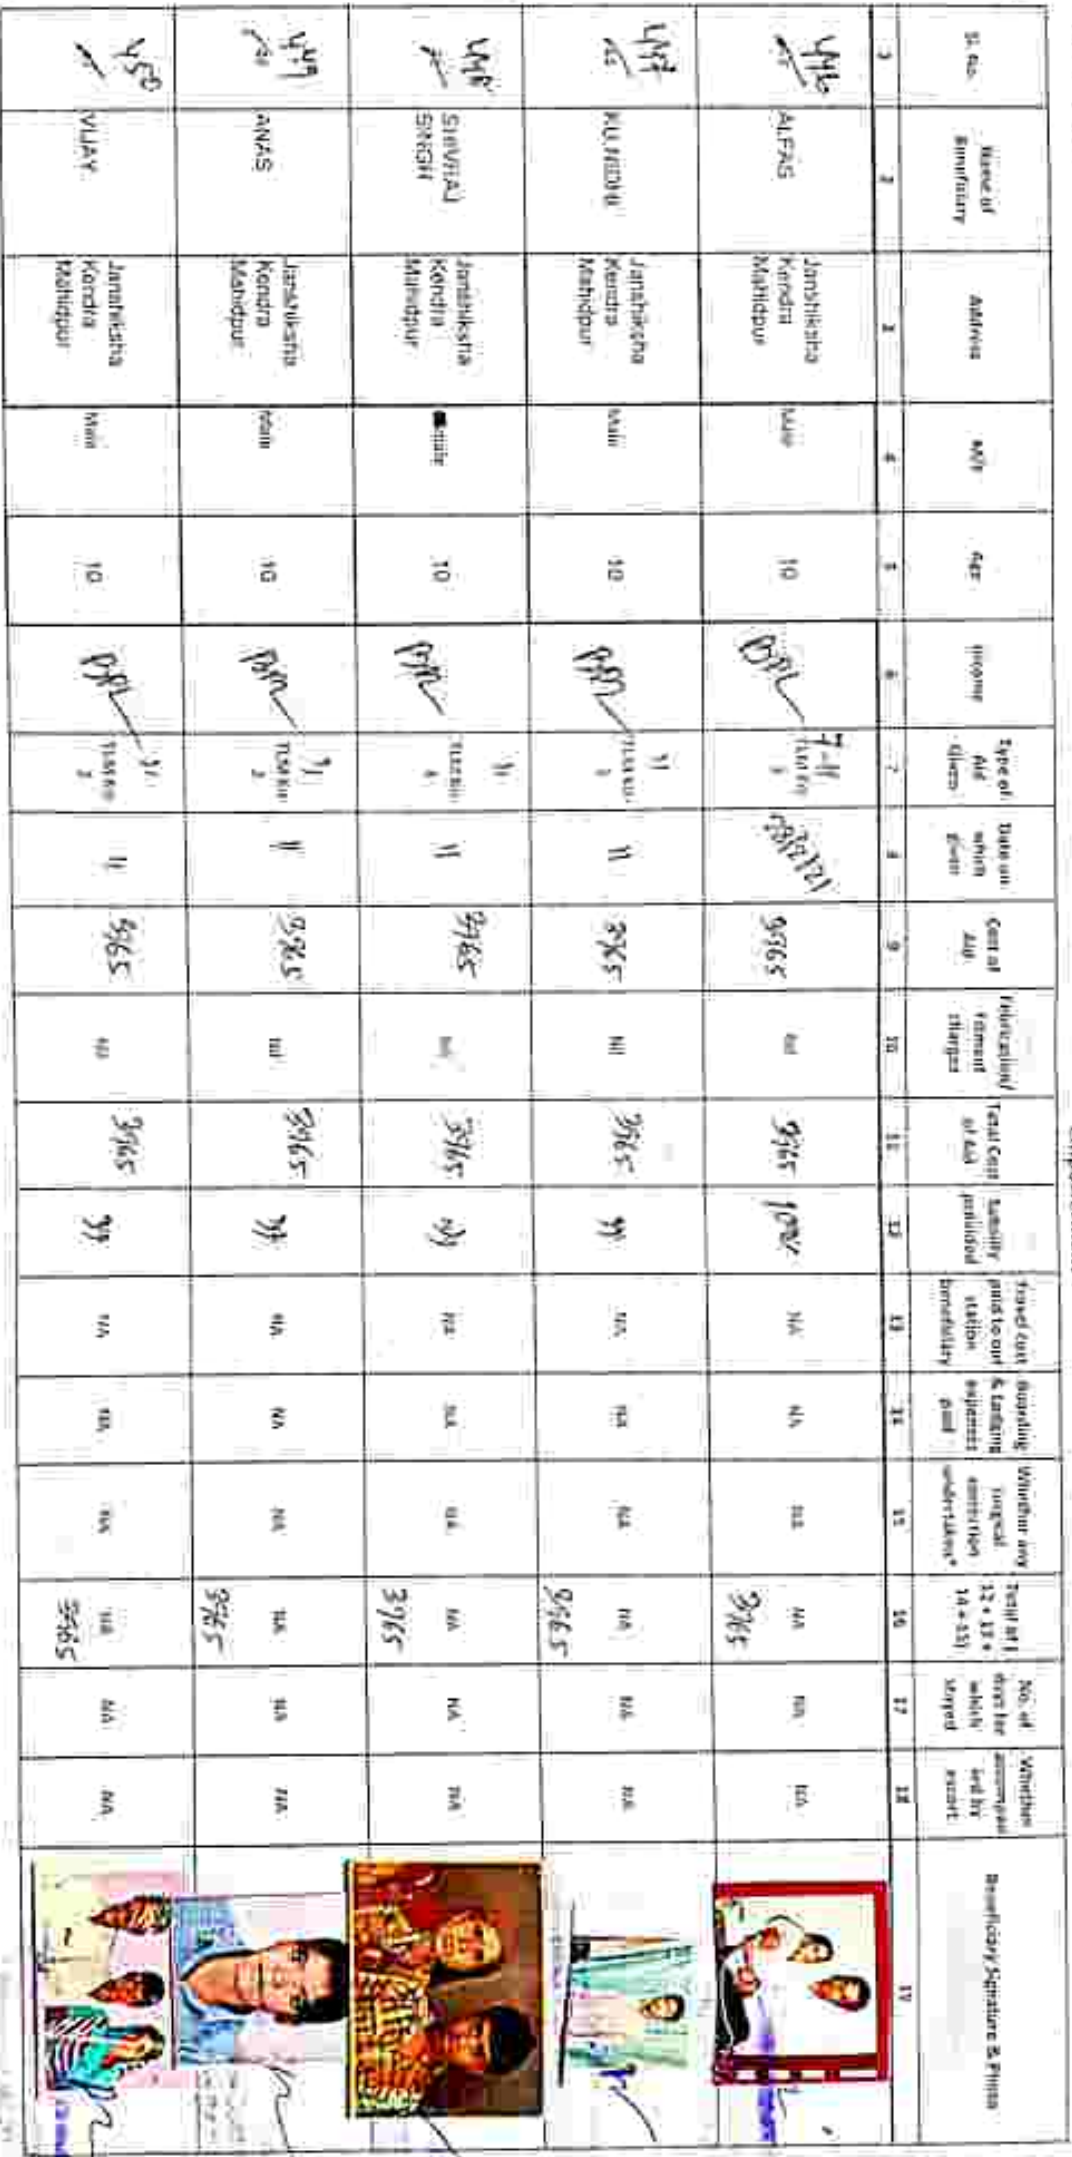 Sl. No.
Name of
Beneficiary
Address
M/F
Age
Income
Type of
Aid
Given
Date on
which
given
Cost of
Aid
Fabrication/
Fitment
charges
Total Cost
of Aid
Subsidy
provided
Travel cost
paid to out
station
beneficiary
Boarding
& Lodging
expenses
paid
Whether any
surgical
correction
undertaken*
Total of (
12 + 13 +
14 + 15)
No. of
days for
which
stayed
Whether
accompan
ied by
escort
Beneficiary Signature & Photo
1 2 3 4 5 6 7 8 9 10 11 12 13 14 15 16 17 18 19
446
ALFAS
Janshiksha
Kendra
Mahidpur
Male
10
BPL
3965
Nil
3965
100%
NA
NA
NA
NA
3965
NA
NA
447
KU NIDHI
Janshiksha
Kendra
Mahidpur
Male
10
BPL
11
3965
Nil
3965
NA
NA
NA
NA
3965
NA
NA
448
SHIVRAJ
SINGH
Janshiksha
Kendra
Mahidpur
male
10
BPL
11
3965
Nil
3965
NA
NA
NA
NA
3965
NA
NA
449
ANAS
Janshiksha
Kendra
Mahidpur
Male
10
BPL
11
3965
Nil
3965
NA
NA
NA
NA
3965
NA
NA
450
VIJAY
Janshiksha
Kendra
Mahidpur
Male
10
BPL
11
3965
Nil
3965
NA
NA
NA
NA
3965
NA
NA